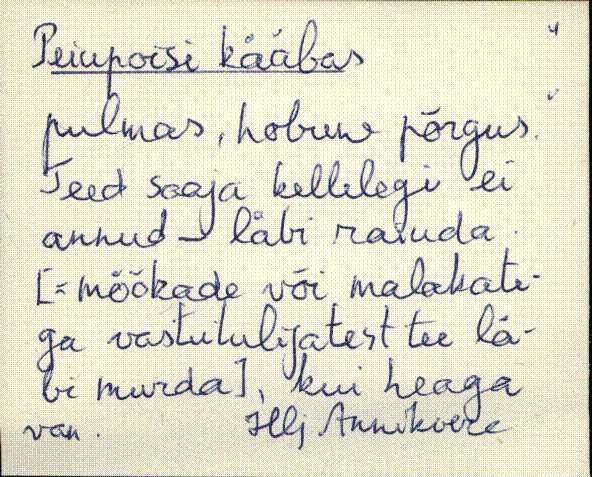 Peiupoisi kääbas "
pulmas, hobune põrgus."
Teed saaja kellelegi ei
annud – läbi raiuda.
[= mõõkade või malakate-
ga vastutulijatest tee lä-
bi murda], kui heaga
van. Hlj Annikvere